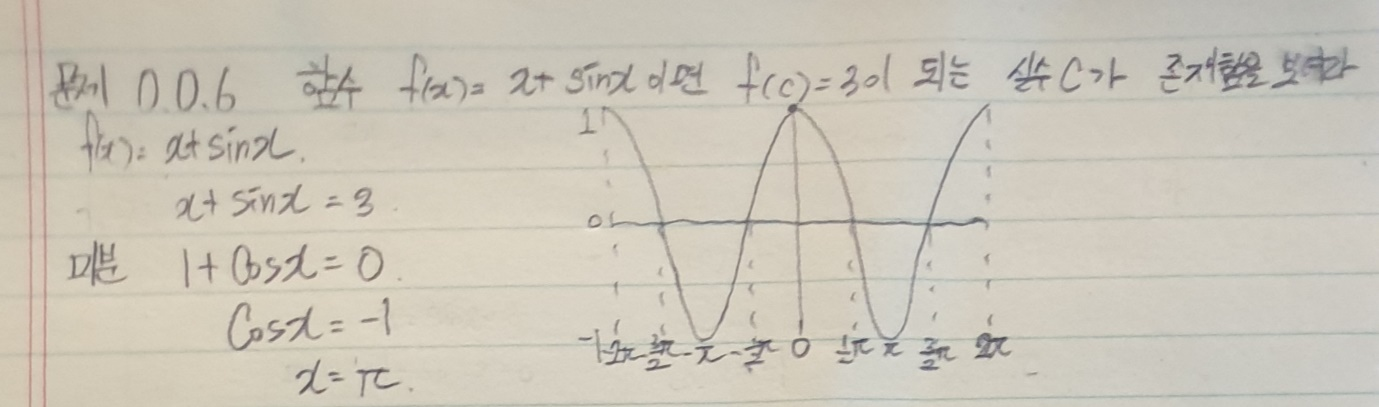 문제 0.0.6 함수 f(x)= x+ sinx 이면 f(c)=3이 되는 실수 C가 존재함을 보여라
f(x)= x+sinx.
x+ sinx = 3.
미분 1+ Cosx = 0.
Cosx = -1
x = π.
1
0
-1 -2π -3/2π -π -1/2π 0 1/2π π 3/2π 2π